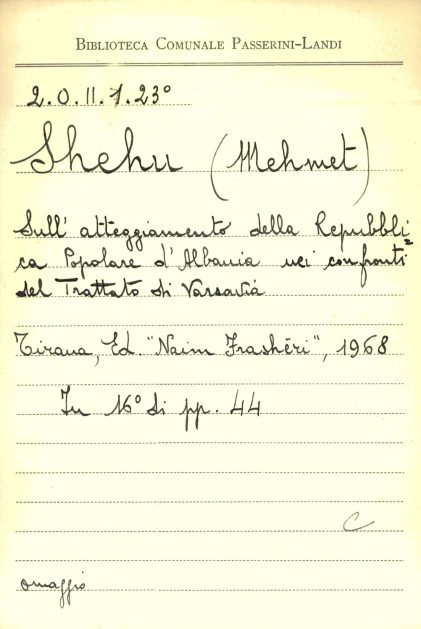 BIBLIOTECA COMUNALE PASSERINI-LANDI
2.O.II.1.23°
Shehu (Mehmet)
Sull' atteggiamento della Repubbli=
ca Popolare d'Albania nei confronti
del Trattato di Varsavia
Tirana, Ed. "Naim Frashëri", 1968
In 16° di pp. 44
C
omaggio